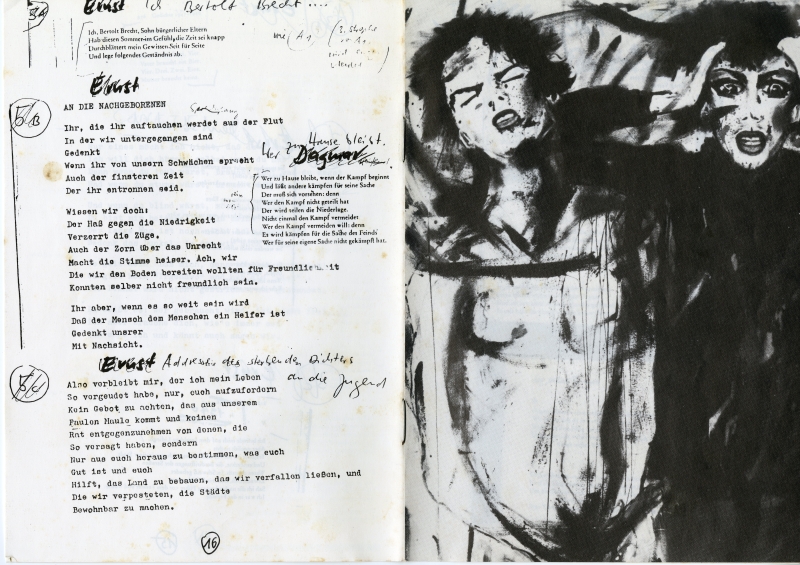 Ernst Ich Bertolt Brecht....
Ich, Bertolt Brecht, Sohn bürgerlicher Eltern
Hab diesen Sommer im Gefühl, die Zeit sei knapp
Durchblättert mein Gewissen Seit für Seite
Und lege folgendes Geständnis ab.
wie A1
(3. Strophe
Ernst
AN DIE NACHGEBORENEN
5/B
Ihr, die ihr auftauchen werdet aus der Flut
In der wir untergegangen sind
Gedenkt
Wenn ihr von unsern Schwächen sprecht
Auch der finsteren Zeit
Der ihr entronnen seid.
Wer zu Hause bleibt.
Dagmar
Wer zu Hause bleibt, wenn der Kampf beginnt
Und läßt andere kämpfen für seine Sache
Der muß sich vorsehen: denn
Wer den Kampf nicht geteilt hat
Der wird teilen die Niederlage.
Nicht einmal den Kampf vermeidet
Wer den Kampf vermeiden will: denn
Es wird kämpfen für die Sache des Feinds
Wer für seine eigene Sache nicht gekämpft hat.
Wissen wir doch:
Der Haß gegen die Niedrigkeit
Verzerrt die Züge.
Auch der Zorn über das Unrecht
Macht die Stimme heiser. Ach, wir
Die wir den Boden bereiten wollten für Freundlichkeit
Konnten selber nicht freundlich sein.
Ihr aber, wenn es so weit sein wird
Daß der Mensch dem Menschen ein Helfer ist
Gedenkt unsrer
Mit Nachsicht.
Ernst Adresse des sterbenden Dichters
an die Jugend
Also verbleibt mir, der ich mein Leben
So vergeudet habe, nur, euch aufzufordern
Kein Gebot zu achten, das aus unserem
Faulen Maule kommt und keinen
Rat entgegenzunehmen von denen, die
So versagt haben, sondern
Nur aus euch heraus zu bestimmen, was euch
Gut ist und euch
Hilft, das Land zu bebauen, das wir verfallen ließen, und
Die wir verpesteten, die Städte
Bewohnbar zu machen.
16